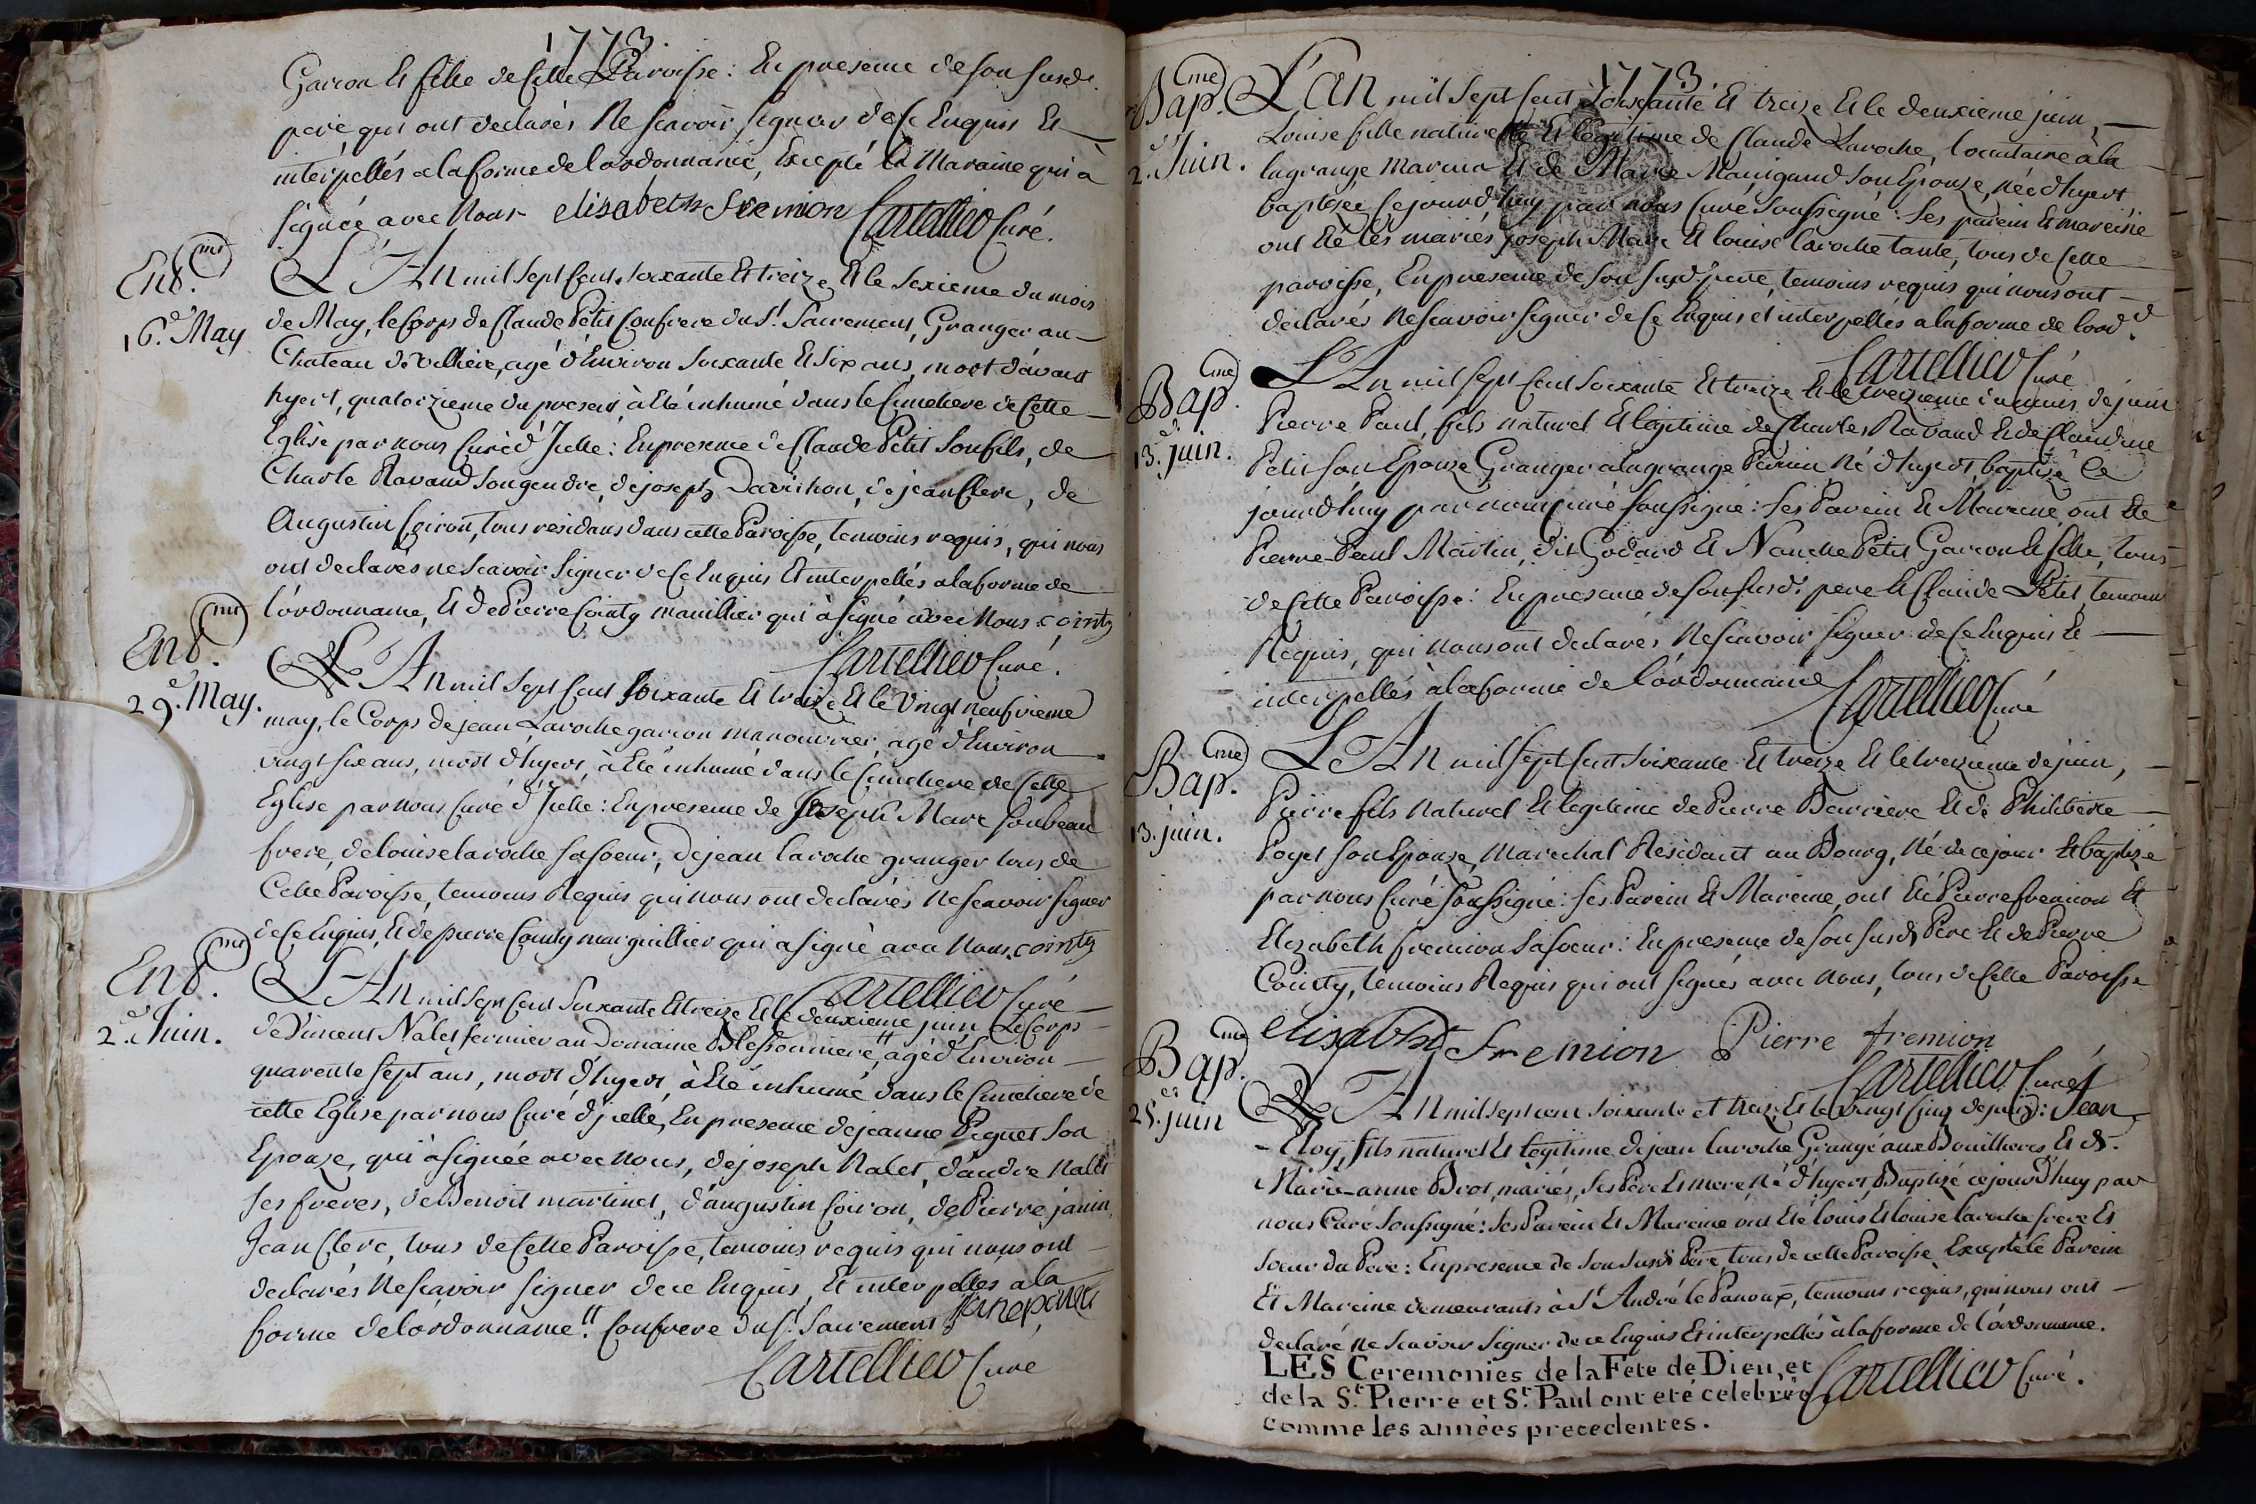 1773.
Garcon et fille de cette Paroisse : En presence de son susd.
pere, qui ont declarés ne scavoir signer de ce Enquis et
interpellés a la forme de l'ordonnance, Excepté la Maraine qui à
signée avec nous elisabeth Fremion Cartellier Curé.
Ent. mt
16.e May
L'An mil sept cent soixante et treize et le sexieme du mois
de May, le Corps de Claude Petit Confrere du St. Sacrement, Granger au
Chateau de Villiere, agé d'Environ soixante et six ans, mort d'avant
hyert, quatorzieme du present, à Eté inhumé dans le Cimetiere de Cette
Eglise par nous Curé d'Jcelle : En presence de Claude Petit son fils, de
Charle Ravaud son gendre, de joseph Davichon, de jean Clerc, de
Augustin Coiron, tous residans dans cette Paroisse, temoins requis, qui nous
ont declarés ne scavoir signer de ce Enquis et interpellés a la forme de
l'ordonnance, et de Pierre Cointy manillier qui à signé avec nous. cointy
Cartellier Curé.
Ent. mt
29.e May.
L'An mil sept cent soixante et treize et le vingt neufvieme
may, le Corps de jean Laroche garcon manouvrier, agé d'Environ
vingt six ans, mort d'hyert, à Eté inhumé dans le Cimetiere de Cette
Eglise par nous Curé d'Jcelle : En presence de Joseph Marc son beau
frere, de louise laroche sa soeur, de jean laroche granger tous de
Cette Paroisse, temoins Requis qui nous ont declarés ne scavoir signer
de ce Enquis, et de pierre Cointy marguillier qui a signé avec nous. cointy
Cartellier Curé
Ent. mt
2.e Juin.
L'An mil sept cent soixante et treize et le deuxieme juin Le Corps
de Vincent Nalet fermier au Domaine Blessonniere, agé d'Environ
quarente sept ans, mort d'hyert, à Eté inhumé dans le Cimetiere de
cette Eglise par nous Curé d'jcelle, En presence de jeanne Piquet son
Epouze, qui à signée avec nous, de joseph Nalet, d'andré Nalet
ses freres, de Benoit martinet, d'augustin Coiron, de Pierre janin,
Jean Clerc, tous de Cette Paroisse, temoins requis qui nous ont
declarés ne scavoir signer de ce Enquis, et interpellés a la
forme de l'ordonnance. Confrere du St. Sacrement
Cartellier Curé
1773.
Bap. me
2.e Juin.
L'An mil sept cent soixante et treize et le deuxieme juin,
Louise fille naturelle et legitime de Claude Laroche, locataire à la
lagrange et de Marie son Epouze, née d'hyert,
baptisée ce jourd'huy par nous Curé soussigné. Ses parein et mareine
ont été les mariés joseph Marc et louise laroche tante, tous de cette
paroisse, En presence de son susd. pere, temoins requis qui nous ont
declarés ne scavoir signer de ce Enquis et interpellés a la forme de l'ord.
Cartellier Curé
Bap. me
13.e juin.
L'An mil sept cent soixante et treize et le treizieme du mois de juin
Pierre Paul, fils naturel et legitime de Charles Ravaud et de Claudine
Petit son Epouze Granger a la grange Perrin né d'hyert, baptisé ce
jourd'huy par nous curé soussigné : ses Parein et Mareine, ont été
Pierre Paul Martin, dit Godard et Nanette Petit Garcon et fille, tous
de Cette Paroisse : En presence de son susd. pere et Claude Petit, temoins
Requis, qui nous ont declarés ne scavoir signer de ce Enquis et
interpellés à la forme de l'ordonnance
Cartellier Curé
Bap. me
13. juin.
L'An mil sept cent soixante et treize et le treizieme de juin,
Pierre fils naturel et legitime de Pierre Barriere et de Philiberte
Poyet son Epouze, Marechal Residant au Bourg, né de ce jour et baptisé
par nous Curé soussigné : ses Parein et Mareine, ont Eté Pierre fremion et
Elizabeth fremion sa soeur : En presence de son susd. Pere et de Pierre
Cointy, temoins Requis qui ont signés avec nous, tous de Cette Paroisse
elisabht Fremion Pierre fremion
Cartellier Curé
Bap. me
25. juin
L'An mil sept cent soixante et treize et le vingt cinq de juin : Jean
Eloy, fils naturel et legitime de jean laroche Grangé aux Bouilleres et de
Marie-anne Brot, mariés, ses Pere et mere, né d'hyert, Baptizé ce jourd'huy par
nous Curé soussigné : ses Parein et Mareine ont Eté louis et louise laroche frere et
soeur du Pere : En presence de son susd. Pere, tous de cette Paroisse, Excepté le Parein
Et Mareine demeurants à St. André le Panoux, temoins requis, qui nous ont
declaré ne scavoir signer de ce Enquis et interpellés à la forme de l'ordonnance.
Cartellier Curé.
LES Ceremonies de la Fete de Dieu, et
de la St. Pierre et St. Paul ont eté celebrée
comme les années precedentes.